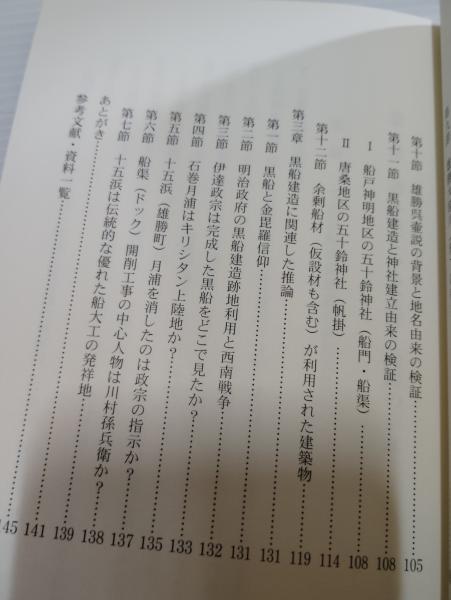 第十節 雄勝呉壷説の背景と地名由来の検証 105
第十一節 黒船建造と神社建立由来の検証 108
Ⅰ 船戸神明地区の五十鈴神社（船門・船渠） 108
Ⅱ 唐桑地区の五十鈴神社（帆掛） 114
第十二節 余剰船材（仮設材も含む）が利用された建築物 119
第三章 黒船建造に関連した推論 131
第一節 黒船と金毘羅信仰 131
第二節 明治政府の黒船建造跡地利用と西南戦争 132
第三節 伊達政宗は完成した黒船をどこで見たか？ 133
第四節 石巻月浦はキリシタン上陸地か？ 135
第五節 十五浜（雄勝町）月浦を消したのは政宗の指示か？ 137
第六節 船渠（ドック）開削工事の中心人物は川村孫兵衛か？ 138
第七節 十五浜は伝統的な優れた船大工の発祥地 139
あとがき 141
参考文献・資料一覧 145